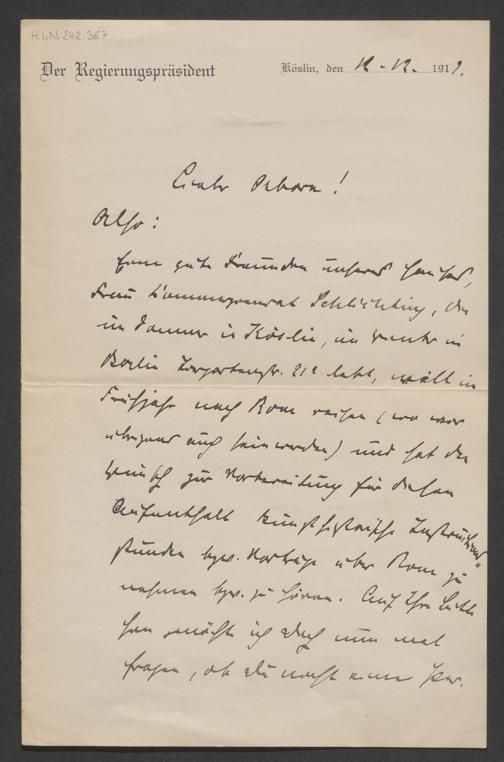 H.I.N. 242.367
Der Regierungspräsident Köslin, den 12.12. 1911.
Lieber Osborn!
Also:
Eine gute Freundin unseres Hauses,
Frau Kommerzienrat Schlichting, die
im Sommer in Köslin, im Winter in
Berlin 21a lebt, will im
Frühjahr nach Rom reisen (wo wir
übrigens auch sein werden) und hat den
Wunsch zur Vorbereitung für diesen
Aufenthalt kunsthistorische Instruktions-
stunden bzw. Vorträge über Rom zu
nehmen bzw. zu hören. Auf Ihre Bitte
hin möchte ich Dich nun mal
fragen, ob Du nicht einen